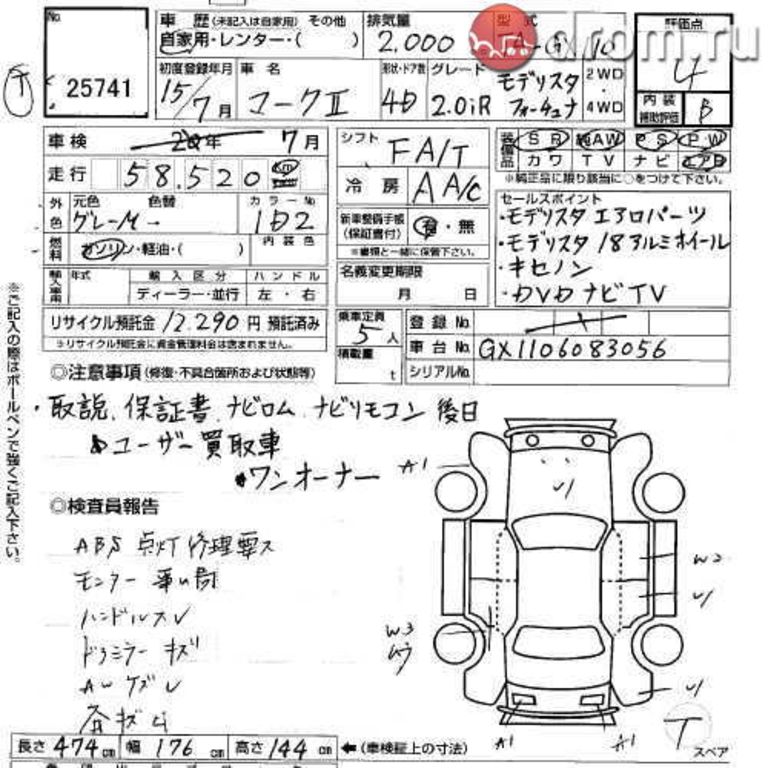 No
25741
車歴 (未記入は自家用) その他
自家用・レンター・( )
排気量
2.000
型式
drom.ru
評価点
4
内装補助評価 B
初度登録年月
15/7月
車名
マークⅡ
形状・ドア数
4D
グレード
2.0iR
モデリスタ
フォーチュナ
2WD
4WD
車検 年 7月
走行 58,520 km
シフト FA/T
冷房 AA/C
装備品 SR 純AW PS PW
カワ TV ナビ エアB
※純正品に限り該当に○をつけて下さい。
外色 元色 色替 カラーNo
グレーM → 1D2
燃料 ガソリン・軽油・( ) 内装色
新車整備手帳
(保証書付) 有・無
※書類と一緒に保管下さい。
セールスポイント
・モデリスタ エアロパーツ
・モデリスタ 18アルミホイール
・キセノン
・DVDナビTV
輸入車用 年式 輸入区分 ハンドル
ディーラー・並行 左・右
名義変更期限
月 日
リサイクル預託金 12.290 円 預託済み
※リサイクル預託金に資金管理料金は含まれません。
乗車定員 5人
積載量 t
登録No.
車台No. GX1106083056
シリアルNo.
◎注意事項(修復・不具合箇所および状態等)
・取説、保証書、ナビロム、ナビリモコン 後日
ユーザー買取車
ワンオーナー
◎検査員報告
ABS 点灯 修理要ス
ハンドルスレ
ドアミラー キズ
※ご記入の際はボールペンで強くご記入下さい。
A1
W2
W3
A1
A1
T
スペア
長さ 474cm 幅 176cm 高さ 144cm ←(車検証上の寸法)